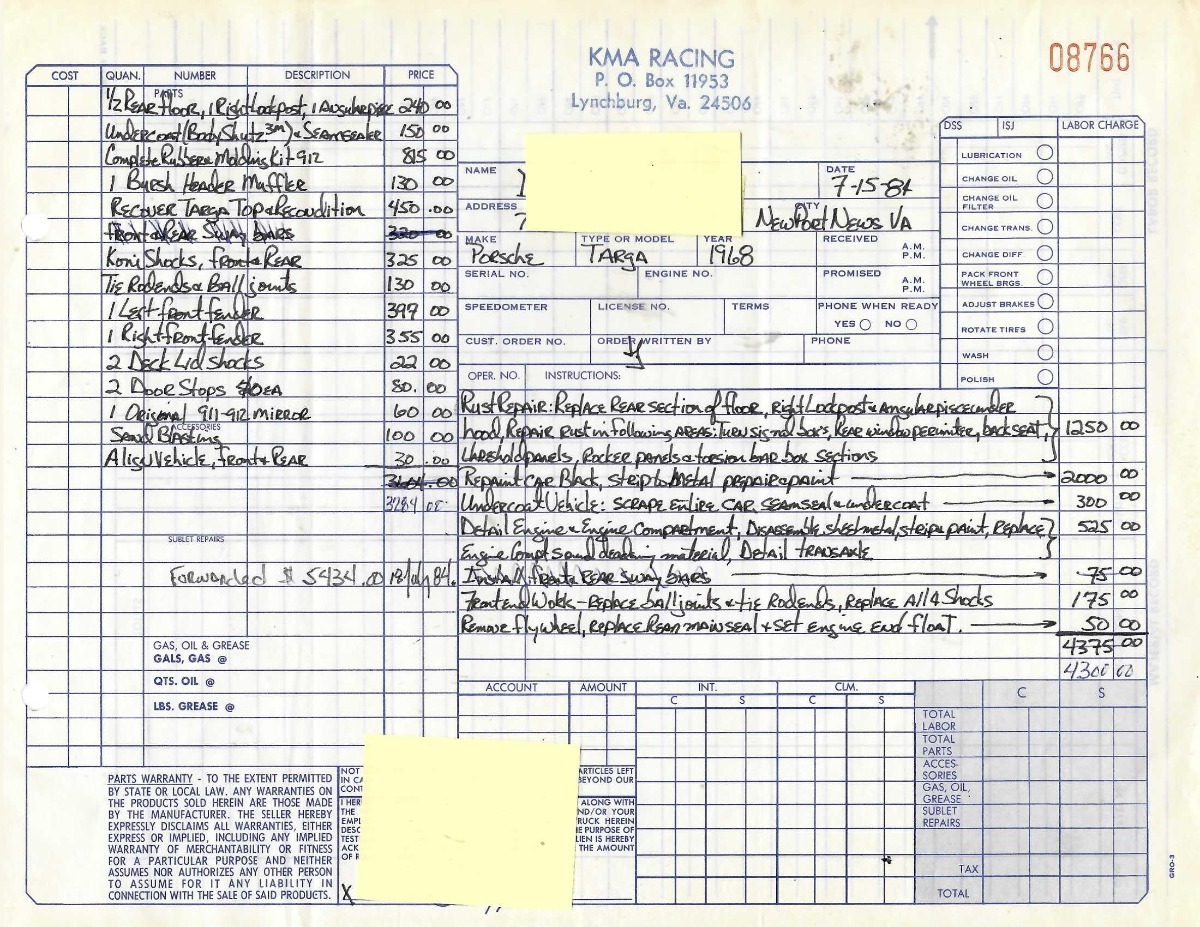 KMA RACING
P. O. Box 11953
Lynchburg, Va. 24506
08766
COST QUAN. NUMBER DESCRIPTION PRICE
PARTS
1/2 Rear Floor, 1 Right Lockpost, 1 Angular pier 240 00
Undercoat (Body Shutz 3M) & Seamsealer 150 00
Complete Rubber & Molding Kit 912 815 00
1 Bursh Header Muffler 130 00
Recover Targa Top & Recondition 450 .00
Front & Rear Sway bars 320 00
Koni Shocks, front & Rear 325 00
Tie Rodends & Ball joints 130 00
1 Left front fender 397 00
1 Right front fender 355 00
2 Deck Lid Shocks 22 00
2 Door Stops 40 EA 80. 00
1 Original 911-912 mirror 60 00
ACCESSORIES
Sand Blasting 100 00
Align Vehicle, Front & Rear 30 .00
3604 .00
3284 00
SUBLET REPAIRS
Forwarded $ 5434.00 18 July 84.
GAS, OIL & GREASE
GALS, GAS @
QTS. OIL @
LBS. GREASE @
NAME
DATE
7-15-84
ADDRESS
7
CITY
Newport News VA
MAKE TYPE OR MODEL YEAR RECEIVED
Porsche Targa 1968
A.M.
P.M.
SERIAL NO. ENGINE NO. PROMISED
A.M.
P.M.
SPEEDOMETER LICENSE NO. TERMS PHONE WHEN READY
YES NO
CUST. ORDER NO. ORDER WRITTEN BY PHONE
OPER. NO. INSTRUCTIONS:
DSS ISJ LABOR CHARGE
LUBRICATION
CHANGE OIL
CHANGE OIL
FILTER
CHANGE TRANS.
CHANGE DIFF.
PACK FRONT
WHEEL BRGS.
ADJUST BRAKES
ROTATE TIRES
WASH
POLISH
Rust Repair: Replace Rear section of floor, Right Lockpost & Angular pisce under
hood, Repair Rust in following Areas: Turn signal box's, Rear window perimiter, back seat, 1250 00
threshold panels, Rocker panels & torsion bar box sections
Repaint Car Black, strip to Metal prepair & paint 2000 00
Undercoat Vehicle: Scrape Entire Car, Seam seal & undercoat 300 00
Detail Engine & Engine Compartment, Disassemble, sheetmetal, strip & paint, Replace 525 00
Engine Compt sound deadning material, Detail transaxle
Install front & Rear Sway bars 75 00
Front end Work - Replace ball joints & tie Rodends, Replace All 4 Shocks 175 00
Remove flywheel, Replace Rear main seal & Set engine End float. 50 00
4375 00
4300 00
ACCOUNT AMOUNT INT. CLM.
C S C S C S
TOTAL
LABOR
TOTAL
PARTS
ACCES-
SORIES
GAS, OIL,
GREASE
SUBLET
REPAIRS
TAX
TOTAL
PARTS WARRANTY - TO THE EXTENT PERMITTED
BY STATE OR LOCAL LAW. ANY WARRANTIES ON
THE PRODUCTS SOLD HEREIN ARE THOSE MADE
BY THE MANUFACTURER. THE SELLER HEREBY
EXPRESSLY DISCLAIMS ALL WARRANTIES, EITHER
EXPRESS OR IMPLIED, INCLUDING ANY IMPLIED
WARRANTY OF MERCHANTABILITY OR FITNESS
FOR A PARTICULAR PURPOSE AND NEITHER
ASSUMES NOR AUTHORIZES ANY OTHER PERSON
TO ASSUME FOR IT ANY LIABILITY IN
CONNECTION WITH THE SALE OF SAID PRODUCTS.
NOT
IN CA
CONT
I HER
THE
EMPL
DESC
TEST
ACK
OF R
X
ARTICLES LEFT
BEYOND OUR
ALONG WITH
ND/OR YOUR
RUCK HEREIN
HE PURPOSE OF
LIEN IS HEREBY
THE AMOUNT
GRO-3